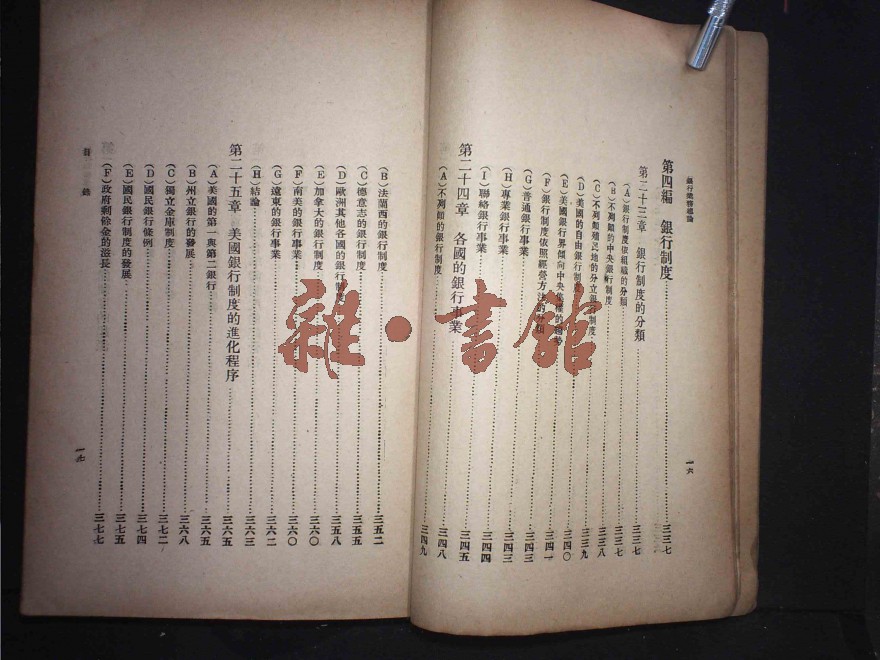 第四編 銀行制度……三三七
第二十三章 銀行制度的分類……三三七
(A)銀行制度依組織的分類……三三七
(B)不列顛的中央銀行制度……三三八
(C)不列顛殖民地的分立銀行制度……三三九
(D)美國的自由銀行制度……三四〇
(E)美國銀行界傾向中央集權的趨勢……三四一
(F)銀行制度依照經營方法的分類……三四三
(G)普通銀行事業……三四三
(H)專業銀行事業……三四四
(I)聯絡銀行事業……三四五
第二十四章 各國的銀行事業……三四八
(A)不列顛的銀行制度……三四九
一六
(B)法蘭西的銀行制度……三五二
(C)德意志的銀行制度……三五五
(D)歐洲其他各國的銀行制度……三五八
(E)加拿大的銀行制度……三六〇
(F)南美的銀行事業……三六〇
(G)遠東的銀行事業……三六二
(H)結論……三六三
第二十五章 美國銀行制度的進化程序……三六五
(A)美國的第一與第二銀行……三六五
(B)州立銀行的發展……三六八
(C)獨立金庫制度……三七二
(D)國民銀行條例……三七四
(E)國民銀行制度的發展……三七五
(F)政府剩餘金的滋長……三七七
目錄
一七
雜·書館